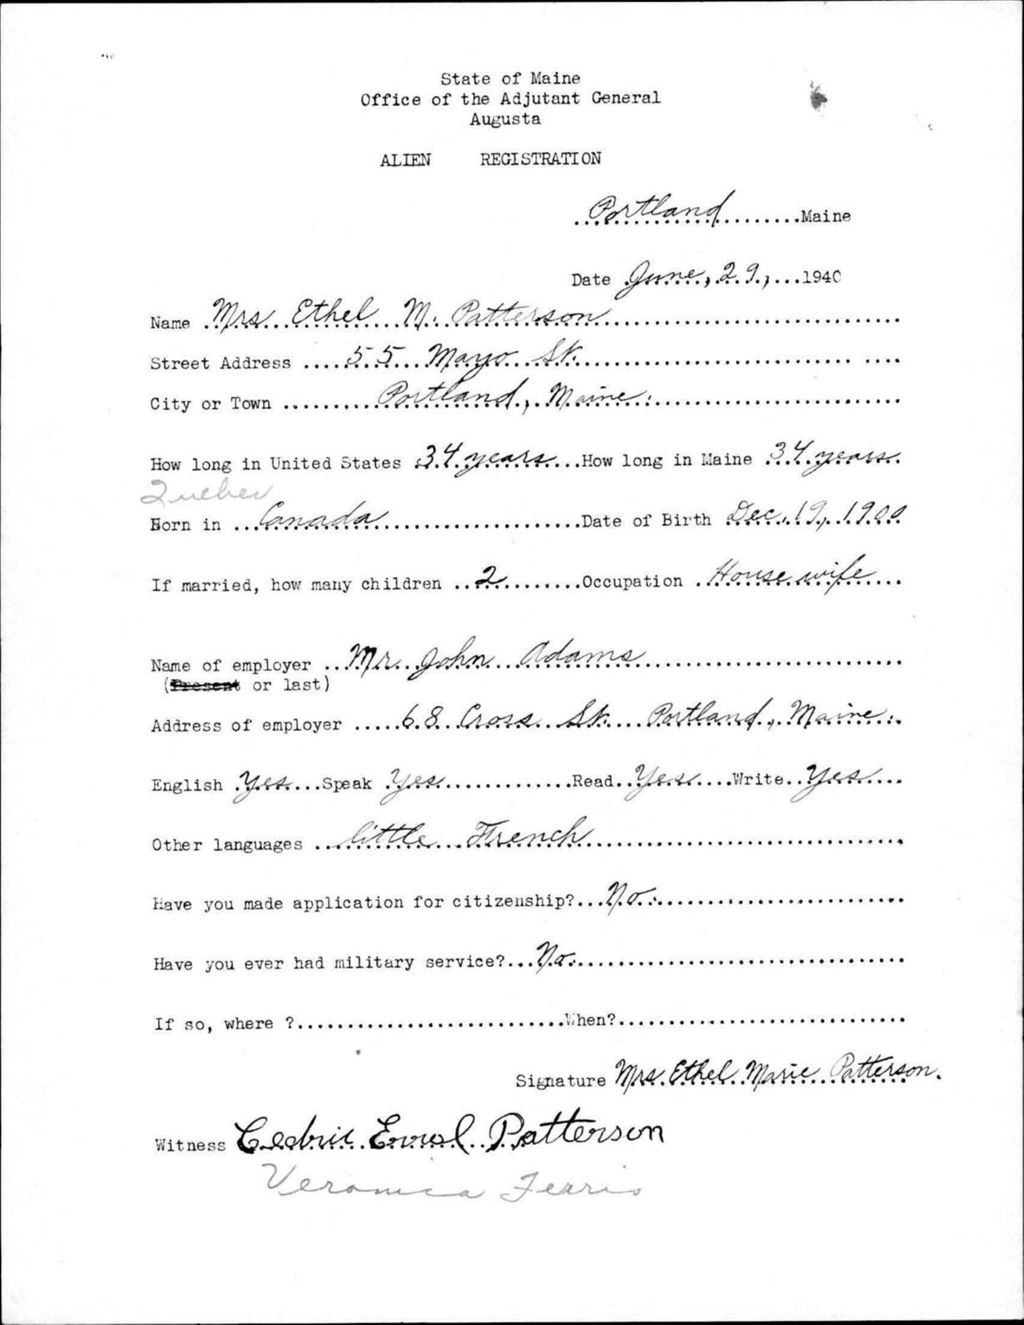 State of Maine
Office of the Adjutant General
Augusta
ALIEN REGISTRATION
Portland Maine
Date June, 29, 1940
Name Mrs Ethel M. Patterson
Street Address 55 Mayo St.
City or Town Portland, Maine.
How long in United States 34 years How long in Maine 34 years
Quebec
Born in Canada Date of Birth Dec. 19, 1900
If married, how many children 2 Occupation Housewife
Name of employer Mr. John Adams
(Present or last)
Address of employer 68 Cross St. Portland, Maine.
English Yes Speak Yes Read Yes Write Yes
Other languages little French
Have you made application for citizenship? No.
Have you ever had military service? No.
If so, where ? When?
Signature Mrs. Ethel Marie Patterson.
Witness Cedric Errol Patterson
Veronica Ferris